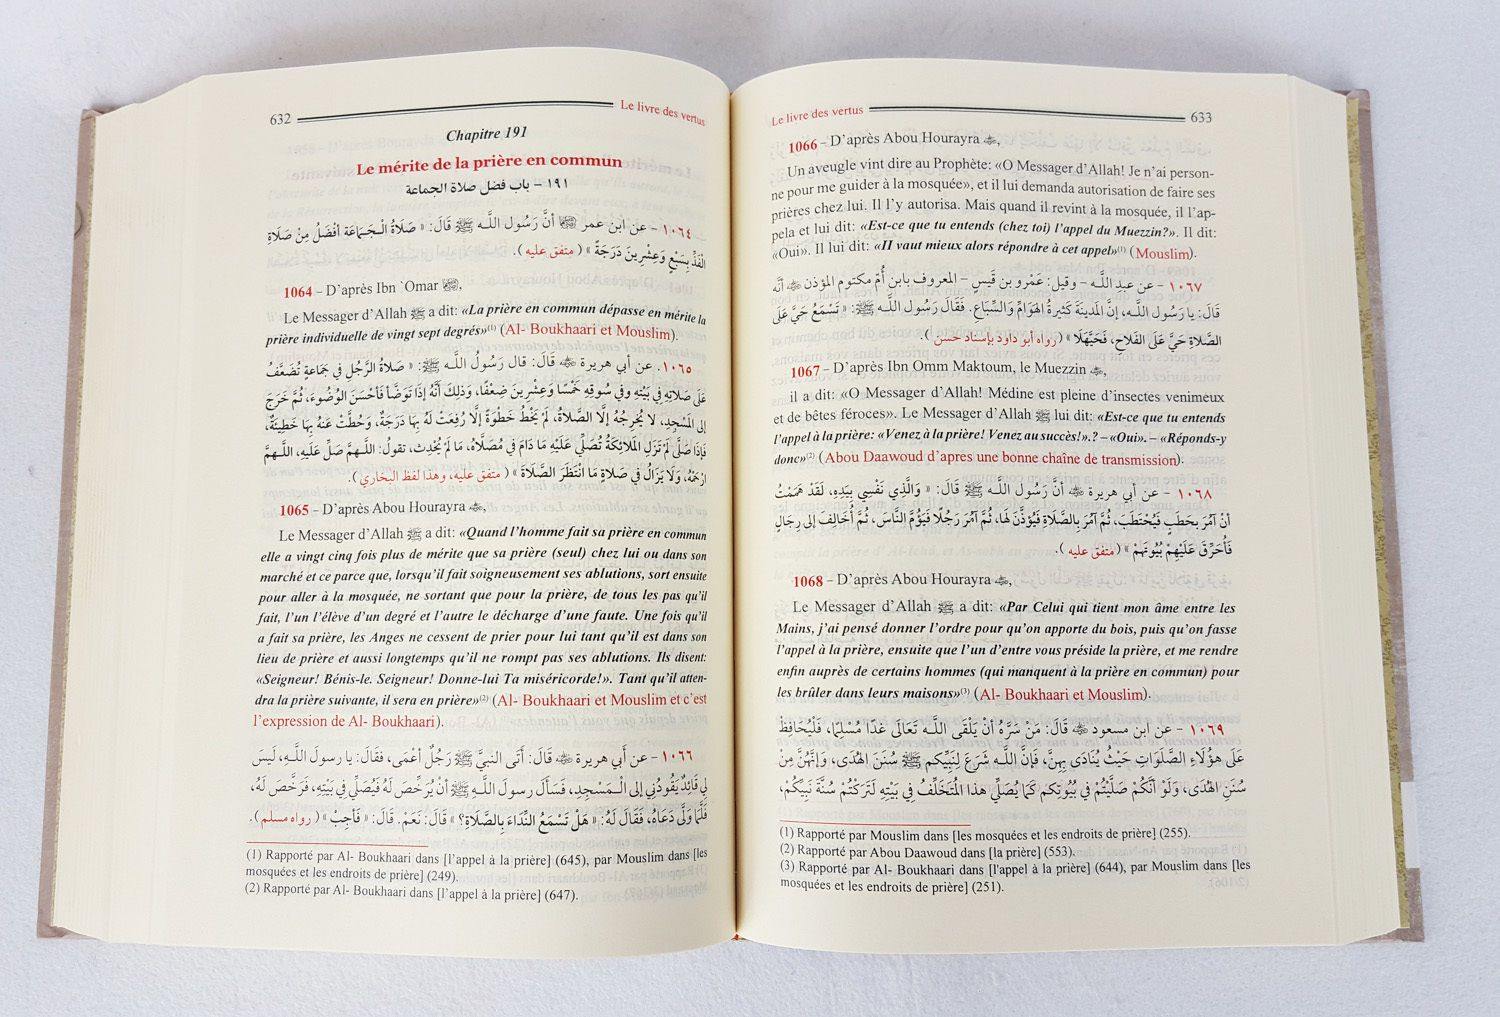 632
Le livre des vertus
Chapitre 191
Le mérite de la prière en commun
١٩١ – باب فضل صلاة الجماعة
١٠٦٤ - عن ابن عمر أنَّ رَسُول اللَّـه ﷺ قَالَ: « صَلَاةُ الْـجَمَاعَة أفْضَلُ مِنْ صَلَاةِ
الْفَذِّ بِسَبْعٍ وَعِشْرِينَ دَرَجَةً » ( متفق عليه ).
1064 – D'après Ibn `Omar ,
Le Messager d'Allah ﷺ a dit: «La prière en commun dépasse en mérite la
prière individuelle de vingt sept degrés»(1) (Al- Boukhaari et Mouslim).
١٠٦٥. عن أبي هريرة قَالَ: قال رَسُولُ اللَّـه ﷺ: « صَلاةُ الرَّجُلِ في جَماعَةٍ تُضَعَّفُ
عَلى صَلاتِهِ فِي بَيْتِهِ وفي سُوقِهِ خَمْسًا وَعِشْرِينَ ضِعْفًا، وَذلِكَ أَنَّهُ إذَا تَوَضَّأ فَأَحْسَنَ الْوُضُوءَ، ثُمَّ خَرَجَ
إلى المَسْجِدِ، لا يُخرِجُهُ إلَّا الصَّلاةُ، لَمْ يَخْطُ خَطْوَةً إلَّا رُفِعَتْ لَهُ بِهَا دَرَجَةٌ، وَحُطَّتْ عَنْهُ بِهَا خَطِيئَةٌ،
فَإذَا صَلَّى لَمْ تَزَلِ المَلائِكَةُ تُصَلِّي عَلَيْهِ مَا دَامَ فِي مُصَلَّاهُ، مَا لَمْ يُحْدِث، تقولُ: اللَّـهمَّ صَلِّ عَلَيهِ، اللَّـهمَّ
ارْحَمْهُ، وَلَا يَزَالُ في صَلاةٍ مَا انْتَظَرَ الصَّلَاةَ » ( متفق عليه، وهذا لفظ البخاري ).
1065 – D'après Abou Hourayra ,
Le Messager d'Allah ﷺ a dit: «Quand l'homme fait sa prière en commun
elle a vingt cinq fois plus de mérite que sa prière (seul) chez lui ou dans son
marché et ce parce que, lorsqu'il fait soigneusement ses ablutions, sort ensuite
pour aller à la mosquée, ne sortant que pour la prière, de tous les pas qu'il
fait, l'un l'élève d'un degré et l'autre le décharge d'une faute. Une fois qu'il
a fait sa prière, les Anges ne cessent de prier pour lui tant qu'il est dans son
lieu de prière et aussi longtemps qu'il ne rompt pas ses ablutions. Ils disent:
«Seigneur! Bénis-le. Seigneur! Donne-lui Ta miséricorde!». Tant qu'il atten-
dra la prière suivante, il sera en prière»(2) (Al- Boukhaari et Mouslim et c'est
l'expression de Al- Boukhaari).
١٠٦٦ - عن أَبي هريرة قَالَ: أَتَى النبيَّ ﷺ رَجُلٌ أَعْمَى، فقَالَ: يا رسولَ اللَّـهِ، لَيسَ
لِي قَائِدٌ يَقُودُنِي إلى الْـمَسْجِدِ، فَسَأَلَ رسولَ اللَّـهِ ﷺ أَنْ يُرَخِّصَ لَهُ فَيُصَلِّيَ فِي بَيْتِهِ، فَرَخَّصَ لَهُ،
فَلَمَّا وَلَّى دَعَاهُ، فَقَالَ لَهُ: « هَلْ تَسْمَعُ النِّدَاءَ بِالصَّلاةِ؟ » قَالَ: نَعَمْ. قَالَ: « فَأَجِبْ » ( رواه مسلم ).
(1) Rapporté par Al- Boukhaari dans [l'appel à la prière] (645), par Mouslim dans [les
mosquées et les endroits de prière] (249).
(2) Rapporté par Al- Boukhaari dans [l'appel à la prière] (647).
Le livre des vertus
633
1066 – D'après Abou Hourayra ,
Un aveugle vint dire au Prophète: «O Messager d'Allah! Je n'ai person-
ne pour me guider à la mosquée», et il lui demanda autorisation de faire ses
prières chez lui. Il l'y autorisa. Mais quand il revint à la mosquée, il l'ap-
pela et lui dit: «Est-ce que tu entends (chez toi) l'appel du Muezzin?». Il dit:
«Oui». Il lui dit: «Il vaut mieux alors répondre à cet appel»(1) (Mouslim).
١٠٦٧ - عن عبد اللَّـه - وقيل: عَمْرو بن قَيسٍ - المعروف بابن أُمِّ مكتوم المؤذن أنَّه
قَالَ: يا رسولَ اللَّـه، إن المَدينَةَ كَثيرَةُ الهَوَامِّ وَالسِّبَاعِ. فَقَالَ رَسُولُ اللَّـه ﷺ: « تَسْمَعُ حَيَّ عَلَى
الصَّلاةِ حَيَّ عَلَى الفَلاحِ، فَحَيَّهَلًا » ( رواه أبو داود بإسناد حسن ).
1067 – D'après Ibn Omm Maktoum, le Muezzin ,
il a dit: «O Messager d'Allah! Médine est pleine d'insectes venimeux
et de bêtes féroces». Le Messager d'Allah ﷺ lui dit: «Est-ce que tu entends
l'appel à la prière: «Venez à la prière! Venez au succès!».? – «Oui». – «Réponds-y
donc»(2) (Abou Daawoud d'apres une bonne chaîne de transmission).
١٠٦٨ - عن أبي هريرة أنَّ رَسُول اللَّـه ﷺ قَالَ: « وَالَّذِي نَفْسِي بِيَدِهِ، لَقَدْ هَمَمْتُ
أنْ آمُرَ بحَطَبٍ فَيُحْتَطَبَ، ثُمَّ آمُرَ بِالصَّلاةِ فَيُؤذَّنَ لهَا، ثُمَّ آمُرَ رَجُلًا فَيَؤُمَّ النَّاسَ، ثُمَّ أُخَالِفَ إلى رِجَالٍ
فَأُحَرِّقَ عَلَيْهِمْ بُيُوتَهمْ » ( متفق عليه ).
1068 – D'après Abou Hourayra ,
Le Messager d'Allah ﷺ a dit: «Par Celui qui tient mon âme entre les
Mains, j'ai pensé donner l'ordre pour qu'on apporte du bois, puis qu'on fasse
l'appel à la prière, ensuite que l'un d'entre vous préside la prière, et me rendre
enfin auprès de certains hommes (qui manquent à la prière en commun) pour
les brûler dans leurs maisons»(3) (Al- Boukhaari et Mouslim).
١٠٦٩ - عن ابن مسعود قَالَ: مَنْ سَرَّه أَنْ يَلْقَى اللَّـه تَعَالَى غَدًا مُسْلِمًا، فَلْيُحَافِظْ
عَلَى هؤُلَاءِ الصَّلَوَاتِ حَيْثُ يُنَادَى بِهِنَّ، فَإنَّ اللَّـهَ شَرَعَ لِنَبِيِّكم ﷺ سُنَنَ الهُدَى، وَإنَّهُنَّ مِنْ
سُنَنِ الهُدَى، وَلَوْ أَنَّكُمْ صَلَّيْتُمْ فِي بُيُوتِكم كَمَا يُصَلِّي هذا المُتَخَلِّفُ فِي بَيْتِهِ لَتَرَكْتُمْ سُنَّةَ نَبِيِّكُمْ،
(1) Rapporté par Mouslim dans [les mosquées et les endroits de prière] (255).
(2) Rapporté par Abou Daawoud dans [la prière] (553).
(3) Rapporté par Al- Boukhaari dans [l'appel à la prière] (644), par Mouslim dans [les
mosquées et les endroits de prière] (251).